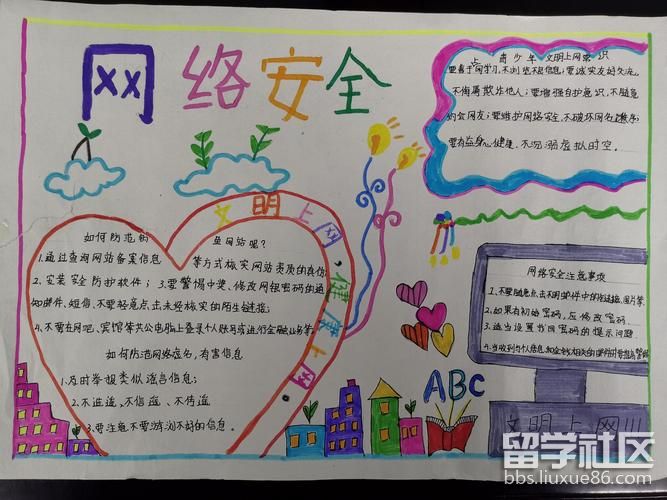 网络安全
青少年文明上网常识
要善于网学习,不浏览不良信息;要诚实友好交流,
不侮辱欺诈他人;要增强自护意识,不随意
约会网友;要维护网络安全,不破坏网络秩序;
要有益身心健康,不沉溺虚拟时空。
文明上网,健康上网。
如何防范钓鱼网站呢?
1.通过查询网站备案信息等方式核实网站资质的真伪
2.安装安全防护软件;3.要警惕中奖、修改网银密码的通
知邮件、短信,不要轻意点击未经核实的陌生链接;
4.不要在网吧、宾馆等公共电脑上登录个人账号或进行金融业务等
如何防范网络虚假、有害信息
1.及时举报类似谣言信息;
2.不造谣、不信谣、不传谣
3.要注意不要浏览不好的信息。
网络安全注意事项
1.不要随意点击不明邮件中的链接、图片等
2.如果有初始密码,应修改密码
3.适当设置书回密码的提示问题
4.当收到与个人信息
ABC
文明上网!!!
留学社区
bbs.liuxue86.com